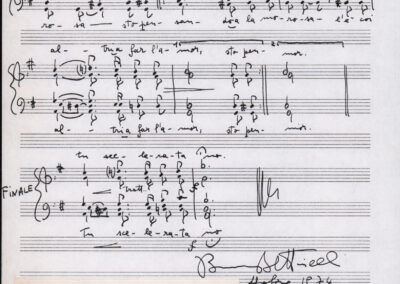 ro - sa sto pen - san - do a la mo - ro - sa - l'à coi
al - - tri a far l'a - mor, sto pen - mor.
al - - tri a far l'a - mor, sto pen - mor.
tu sce - le - ra - ta no.
FINALE
ratt.
Tu sce - le - ra - ta no
1974